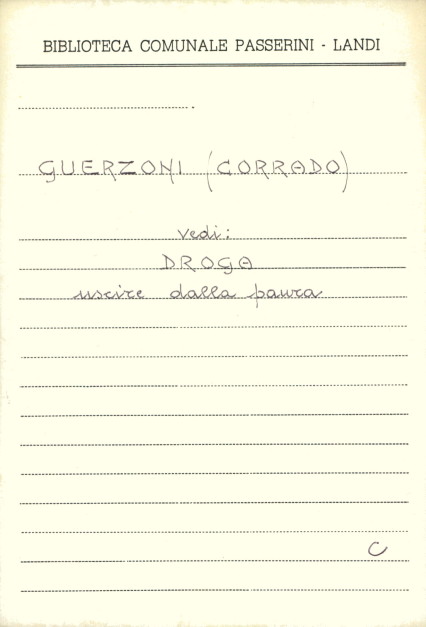 BIBLIOTECA COMUNALE PASSERINI - LANDI
GUERZONI (CORRADO)
vedi:
DROGA
uscire dalla paura
C